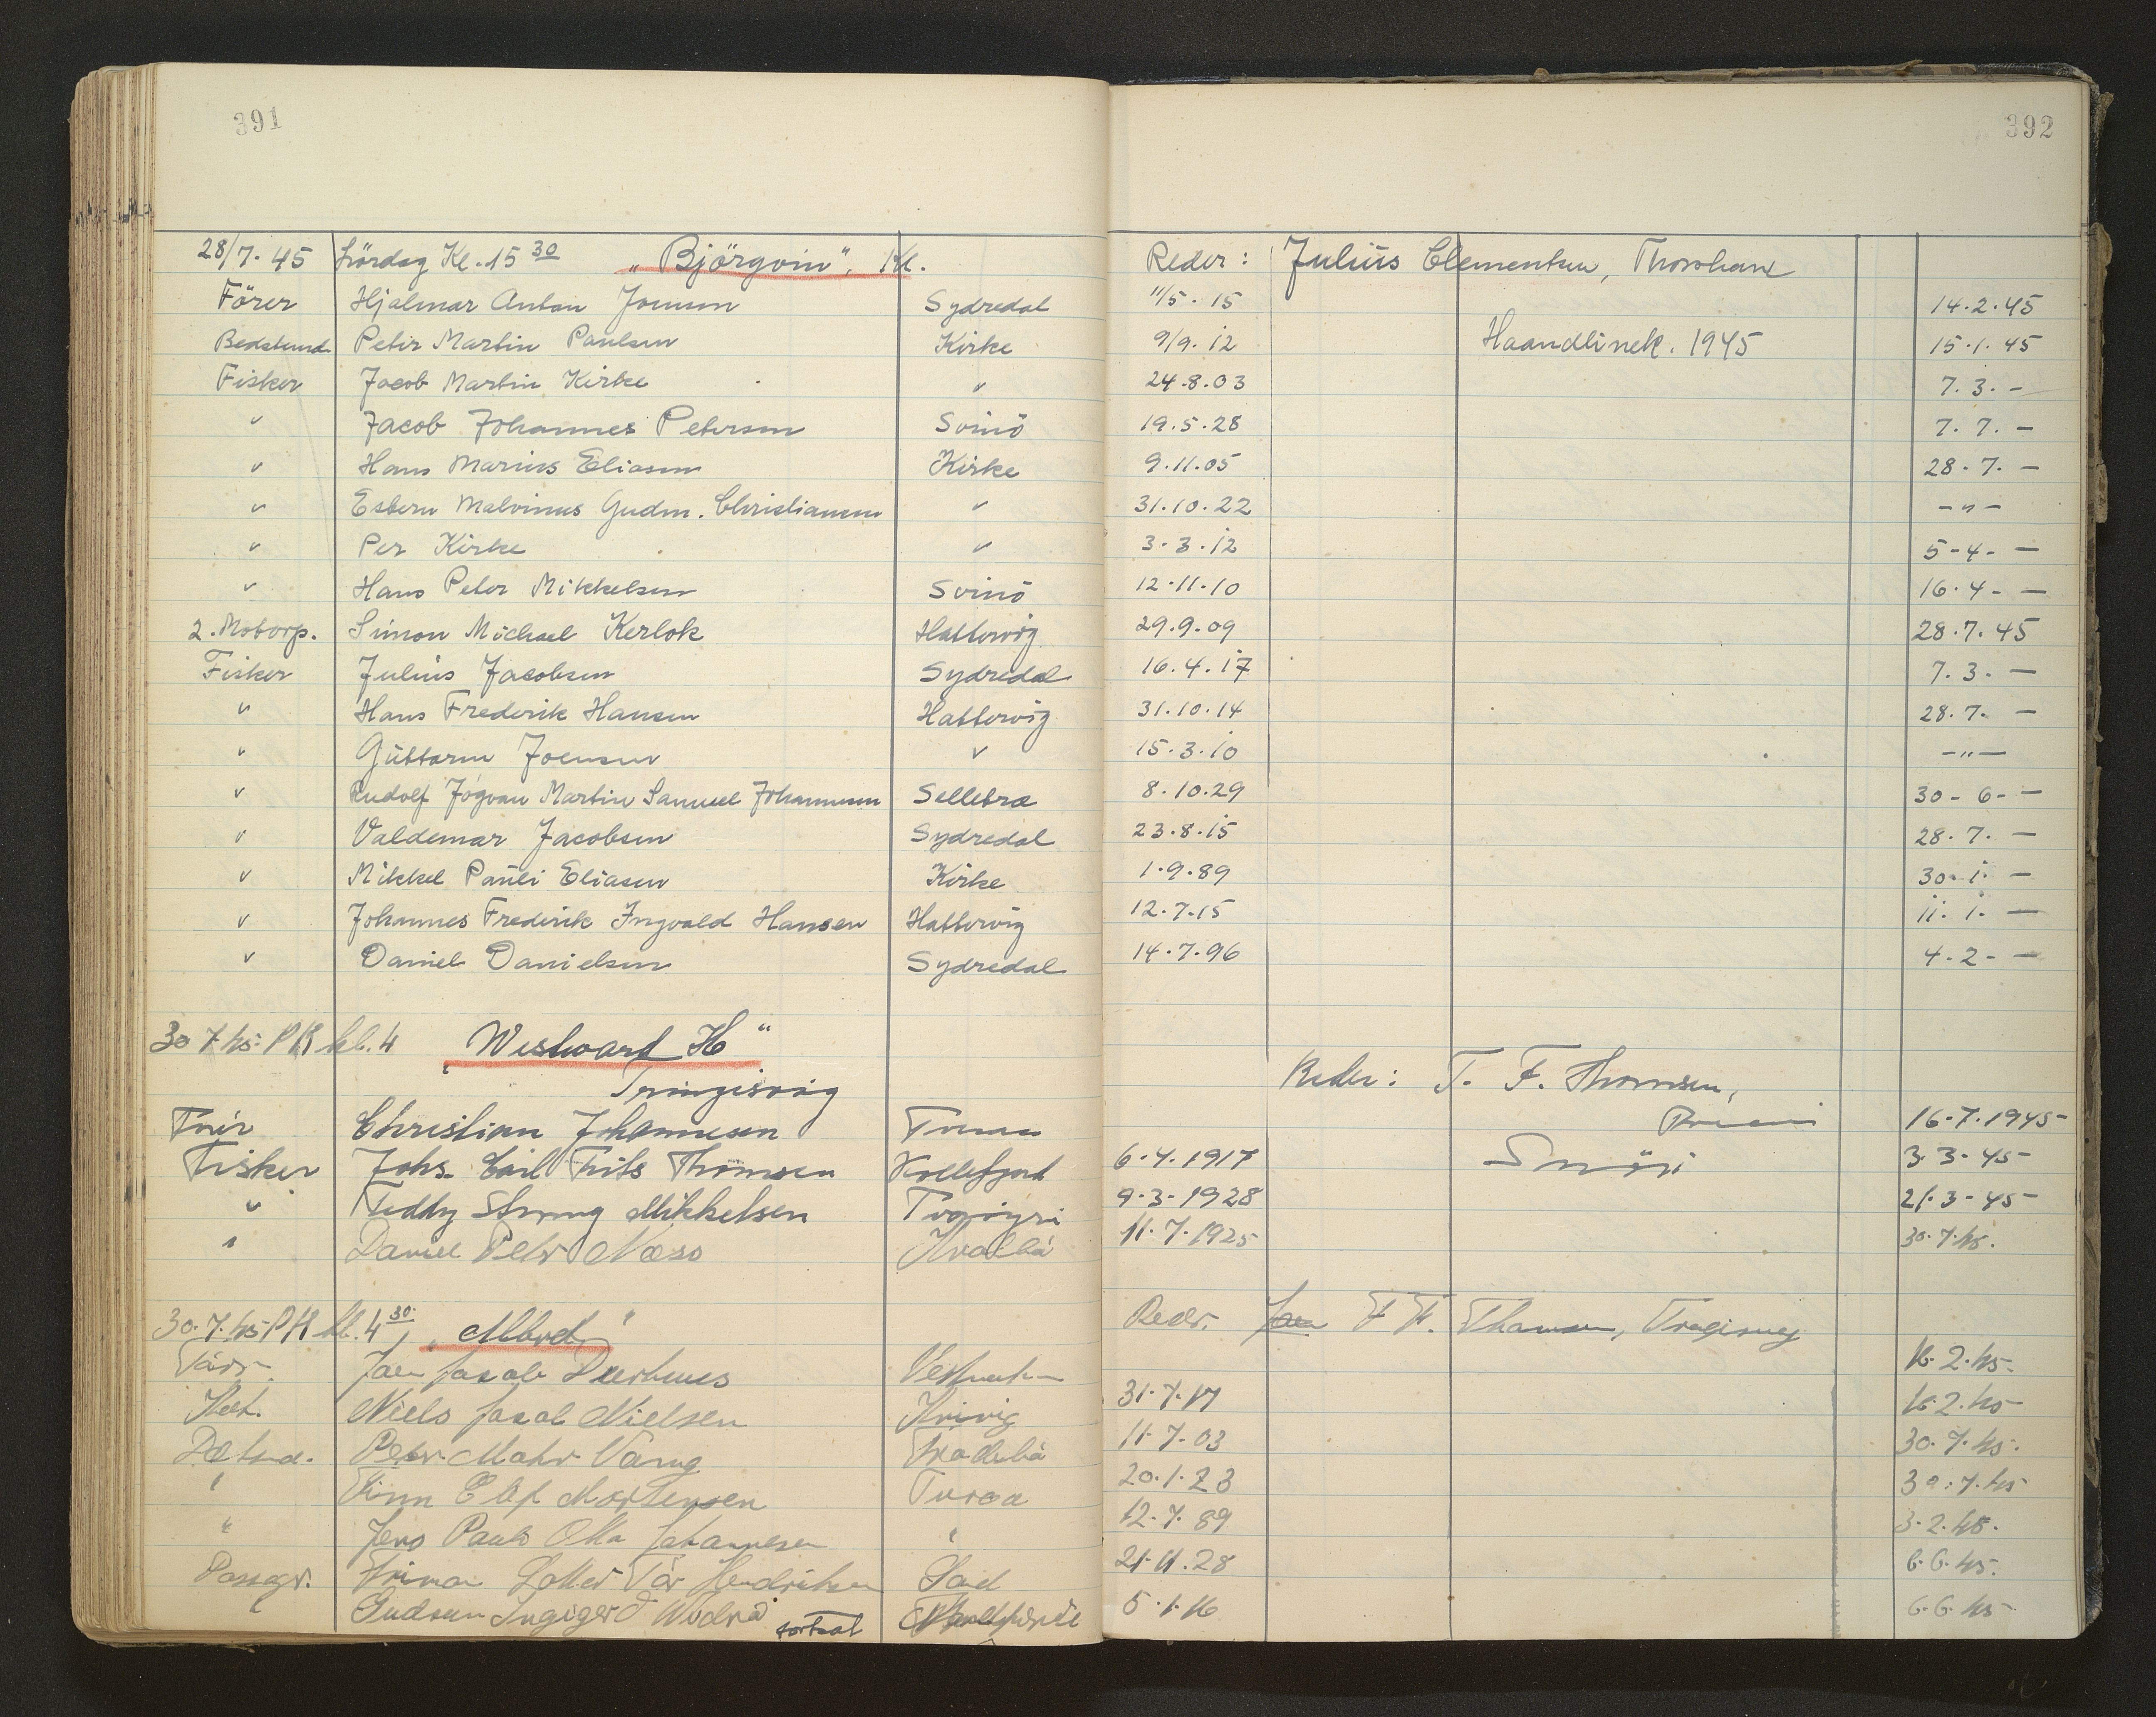 391
392
28/7. 45 Lördag Kl. 15 30 "Björgvin", Kl. Reder: Julius Clementsen, Thorshavn
Förer Hjalmar Anton Joensen Sydredal 11/5. 15 14.2.45
Bedstemd Peter Martin Poulsen Kirke 9/9. 12 Haandlinek. 1945 15.1.45
Fisker Jacob Martin Kirke " 24.8.03 7.3. -
" Jacob Johannes Petersen Svinö 19.5.28 7.7. -
" Hans Marius Eliasen Kirke 9.11.05 28.7. -
" Esbern Malvinus Gudm. Christiansen " 31.10.22 -"-
" Per Kirke " 3.3.12 5-4- -
" Hans Peter Mikkelsen Svinö 12.11.10 16.4- -
2. Motorp. Simon Michael Kerlok Hattervig 29.9.09 28.7.45
Fisker Julius Jacobsen Sydredal 16.4.17 7.3. -
" Hans Frederik Hansen Hattervig 31.10.14 28.7. -
" Guttorm Joensen " 15.3.10 -"-
" Rudolf Jógvan Martin Samuel Johannesen Selletræ 8.10.29 30-6- -
" Valdemar Jacobsen Sydredal 23.8.15 28.7. -
" Mikkel Pauli Eliasen Kirke 1.9.89 30-1- -
" Johannes Frederik Ingvald Hansen Hattervig 12.7.15 11.1. -
" Daniel Danielsen Sydredal 14.7.96 4-2- -
30 7.45. PK kl. 4 "Westward H"
Trangisvåg Reder: T. F. Thomsen,
Christian Johannesen 16.7.1945
Fisker Johs. Emil Frits Thomsen Kollefjord 6.4.1917 3.3.45
" Teddy Strong Mikkelsen Tvøroyri 9.3.1928 21.3-45
" Daniel Peter Næss Hvalbå 11.7.1925 30.7.45.
30.7.45 PK kl. 4 30, Reder. F F. Thomsen,
Jacob 16.2.45.
Niels Jacob Nielsen 31.7.17 16.2.45
Peter 11-7-03 30.7.45.
" Finn Mortensen 20.1.23 30.7.45
" Jens Pauli Otto Johannesen " 12.7.89 3.2.45.
Passager. Hendriksen 21.11.28 6.6.45.
" Ingigerd fortsat 5.1.16 6.6.45